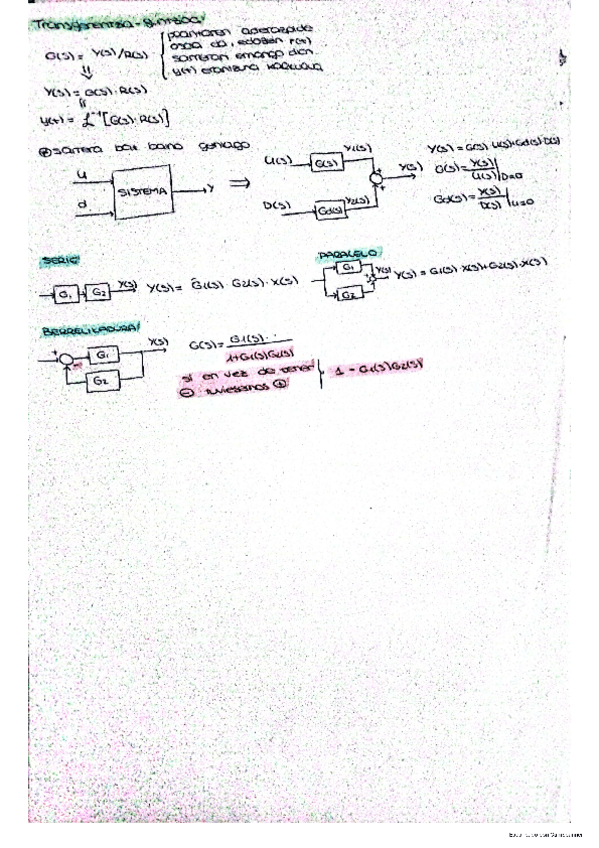 Transferentzia-funtzioa/
G(s) = Y(s)/R(s)
Y(s) = G(s)·R(s)
y(t) = ℒ⁻¹[G(s)·R(s)]
osoa da, edozein r(t)
sarreran emango dion
y(t) erantzuna kalkulatu
sarrera bat baino gehiago
U
d
SISTEMA
Y
⇒
U(s)
G(s)
Y1(s)
D(s)
Gd(s)
Y2(s)
+
+
Y(s)
Y(s) = G(s)·U(s)+Gd(s)·D(s)
G(s) = Y(s)/U(s)|D=0
Gd(s) = Y(s)/D(s)|U=0
SERIE
G1
G2
Y(s)
Y(s) = G1(s)·G2(s)·X(s)
PARALELO
G1
G2
Y(s)
Y(s) = G1(s)·X(s)+G2(s)·X(s)
BERRELIKADURA/
+
-
G1
G2
Y(s)
G(s) = G1(s)
1+G1(s)G2(s)
si en vez de tener
⊖ tuviesemos ⊕
1 - G1(s)G2(s)